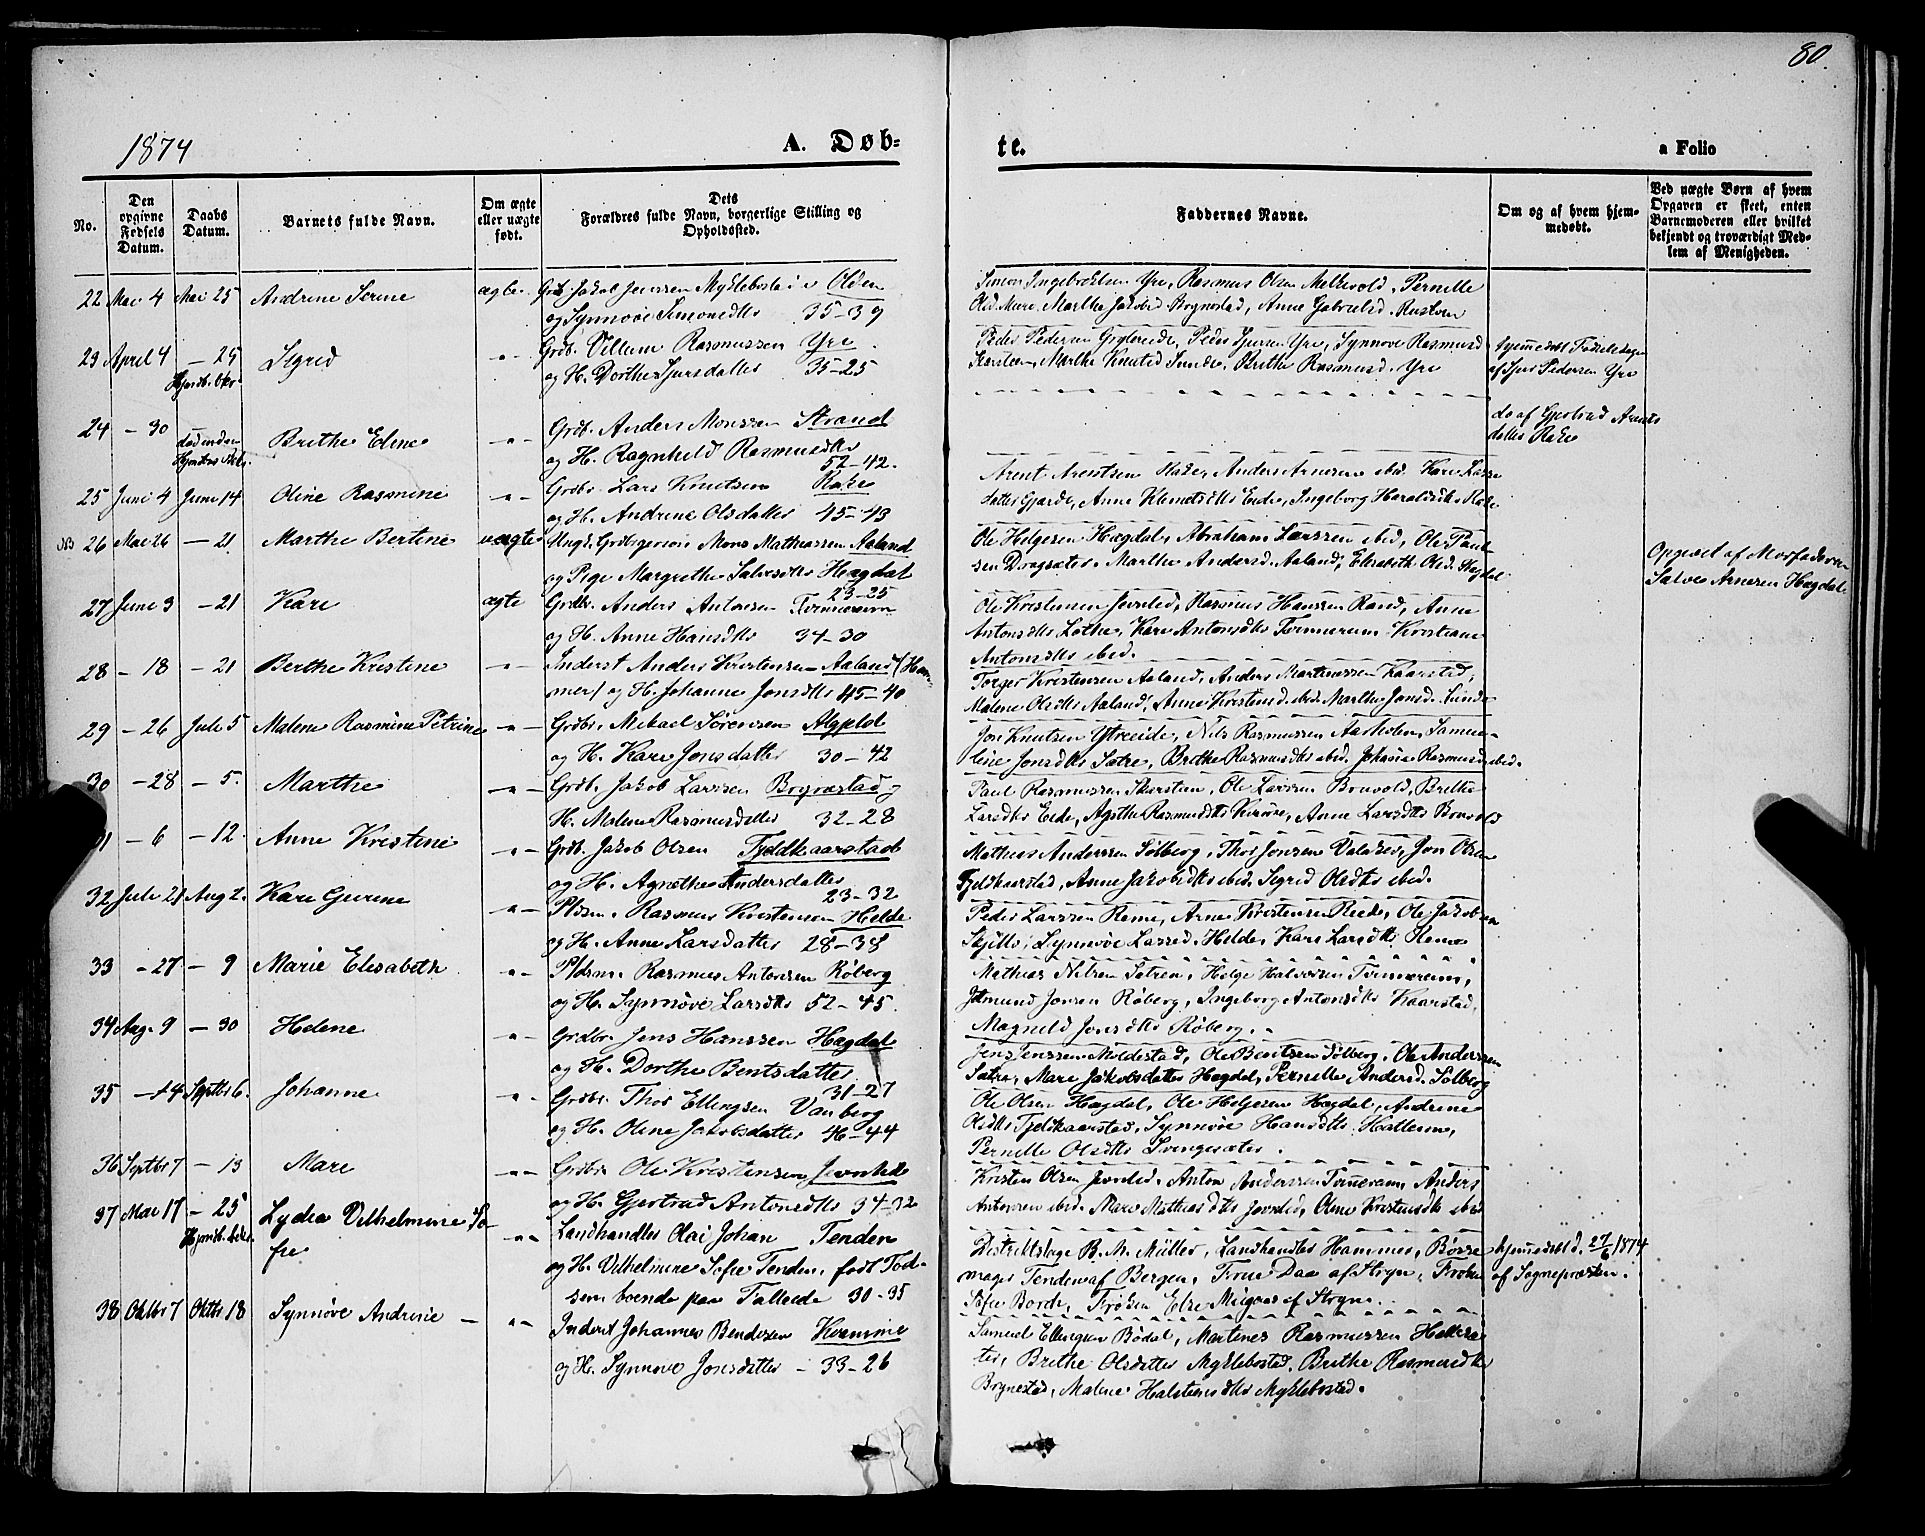 80.
1874
A. Døb=
te.
a Folio
No.
Den opgivne Fødsels Datum.
Daabs Datum.
Barnets fulde Navn.
Om ægte eller uægte født.
Dets Forældres fulde Navn, borgerlige Stilling og Opholdssted.
Faddernes Navne.
Om og af hvem hjemmedøbt.
Ved uægte Børn af hvem Opgaven er skeet, enten Barnemoderen eller hvilket bekjendt og troværdigt Medlem af Menigheden.
22 Mai 4 Mai 25 Andrine Serine ægte Jakob Jenssen Myklebostad i Olden
og Synnøve Simonsdtr 35-39
Simon Ingebrektsen Yri, Rasmus Olsen Melkevold, Pernille
Marthe Jakobsd. Brynestad, Anne Gabrielsd. Rustøen
23 April 4 - 25 Sigrid -"- Grdbr. Villum Rasmussen Yri
og H. Dorthe Sjursdatter 35-25
Peder Pedersen Gryteride, Peder Sjursen Yri, Synnøve Rasmusd.
Marthe Knutsd. Sunde, Brithe Rasmusd. Yri
hjemmedøbt Fødselsdagen
af Sjur Pedersen Yri
24 - 30 Brithe Eline -"- Grdbr. Anders Monssen Strand
og H. Ragnhild Rasmusdtr
52-42.
do af Gjertrud Arnts
datter Rake
25 Juni 4 Juni 14 Oline Rasmine -"- Grdbr. Lars Knutsen Rake
og H. Andrine Olsdatter 45-43
Arent Arentsen Rake, Anders Arnesen ibid. Kari Lars
datter Gjørde, Anne Klemetsdtr Eide, Ingeborg Haraldsdtr Rake
NB 26 Mai 26 - 21 Marthe Bertine uægte Ungk. Mons Mathiassen Aaland
og Pige Margrethe Salvesdtr Hægdal
23-25
Ole Helgesen Hægdal, Abraham Larssen ibid, Ole Paul
sen Dragsæter, Marthe Andersd. Aaland, Elisabeth Olsd. Hægdal
Opgivet af Morfaderen
Salve Arnesen Hægdal
27 Juni 3 - 21 Kari ægte Grdbr. Anders Antonsen Tvinnereim
og H. Anne Hansdtr 34-30
Ole Kristensen Jevnled, Rasmus Hanssen Rand, Anne
Antonsdtr Lothe, Kari Antonsdtr Tvinnereim, Kristiane
Antonsdtr ibid.
28 - 18 - 21 Berthe Kristine -"- Inderst Anders Kristensen Aaland (Ham
mer) og H. Johanne Jonsdtr 45-40
Torger Kristensen Aaland, Anders Martinussen Kaarstad,
Malene Olsdtr Aaland, Anne Kristensd. ibid. Marthe Jonsd. Sunde
29 - 26 Juli 5 Malene Rasmine Petrine -"- Grdbr. Mikael Sørensen Algjeld
og H. Kari Jonsdatter 30-42
Jon Knutsen Ytreeide, Nils Rasmussen Aarholen, Samue-
line Jonsdtr Sætre, Brithe Rasmusdtr ibid. Johanne Rasmusd. ibid.
30 - 28 - 5. Marthe -"- Grdbr. Jakob Larssen Brynestad og
H. Malene Rasmusdatter 32-28
Paul Rasmussen Skarstein, Ole Larssen Bruvold, Brithe
Larsdtr Eide, Agathe Rasmusdtr, Anne Larsdtr Bruvold
31 - 6 - 12. Anne Kristine -"- Grdbr. Jakob Olsen Fjeldkaarstad
og H. Agnethe Andersdatter
23-32
Mathias Anderssen Solberg, Thor Jonsen, Jon Olsen
Fjeldkaarstad, Anne Jakobsdtr ibid. Sigrid Olsdtr ibid.
32 Juli 21 Aug 2. Kari Gurine -"- Pldsm. Rasmus Kristensen Helde
og H. Anne Larsdatter 28-38
Peder Larssen, Arne Kristensen, Ole Jakobsen
Synnøve Larsd. Helde, Kari Larsdtr
33 - 27 - 9 Marie Elisabeth -"- Pldsm. Rasmus Antonsen Røberg
og H. Synnøve Larsdtr 52-45.
Mathias Nilsen Sætren, Helge Halvorsen Tvinnereim,
Jetmund Jonsen Røberg, Ingeborg Antonsdtr Kaarstad,
Magnild Jonsdtr Røberg.
34 Aug. 9 - 30 Helene -"- Grdbr. Jens Hanssen Hægdal
og H. Dorthe Bentsdatter
31-27
Jens Jenssen Moldestad, Ole Bentsen Solberg, Ole Anderssen
Sætre, Mari Jakobsdatter Hægdal, Pernille Andersd. Solberg
35 -14 Septbr 6. Johanne -"- Grdbr. Thor Ellingsen Vanberg
og H. Oline Jakobsdatter 46-44
Ole Olsen Hægdal, Ole Helgesen Hægdal, Andrine
Olsdtr Fjeldkaarstad, Synnøve Hansdtr,
Pernille Olsdtr Svingesæter.
36 Septbr 7 - 13 Mari -"- Grdbr. Ole Kristensen Jevnled
og H. Gjertrud Antonsdtr 34-32
Kristen Olsen Jevnled, Anton Anderssen Tvinnereim, Anders
Antonsen ibid. Mari Mathiasdtr Jevnled, Oline Kristensdtr ibid
37 Mai 17 - 25 Lydia Vilhelmine So-
fie -"- Landhandler Olai Johan Tenden
og H. Vilhelmine Sofie Tenden, født Tod-
sem boende paa Falleide 30-35
Distriktslæge B. M. Müller, Landhandler Hammer, Børse
mager Tenden af Bergen, Frue Daa af Stryn, Frøken
Sofie Borch, Frøken Else af Stryn.
hjemmedøbt d. 27/6 1874
af Sognepræsten.
38 Oktbr 7 Oktbr 18 Synnøve Andrine -"- Inderst Johannes Bendiksen Kvamme
og H. Synnøve Jonsdatter - 33-26
Samuel Ellingsen Bødal, Martines Rasmussen
Brithe Olsdatter Myklebostad, Brithe Rasmusdtr
Brynestad, Malene Halstensdtr Myklebostad.